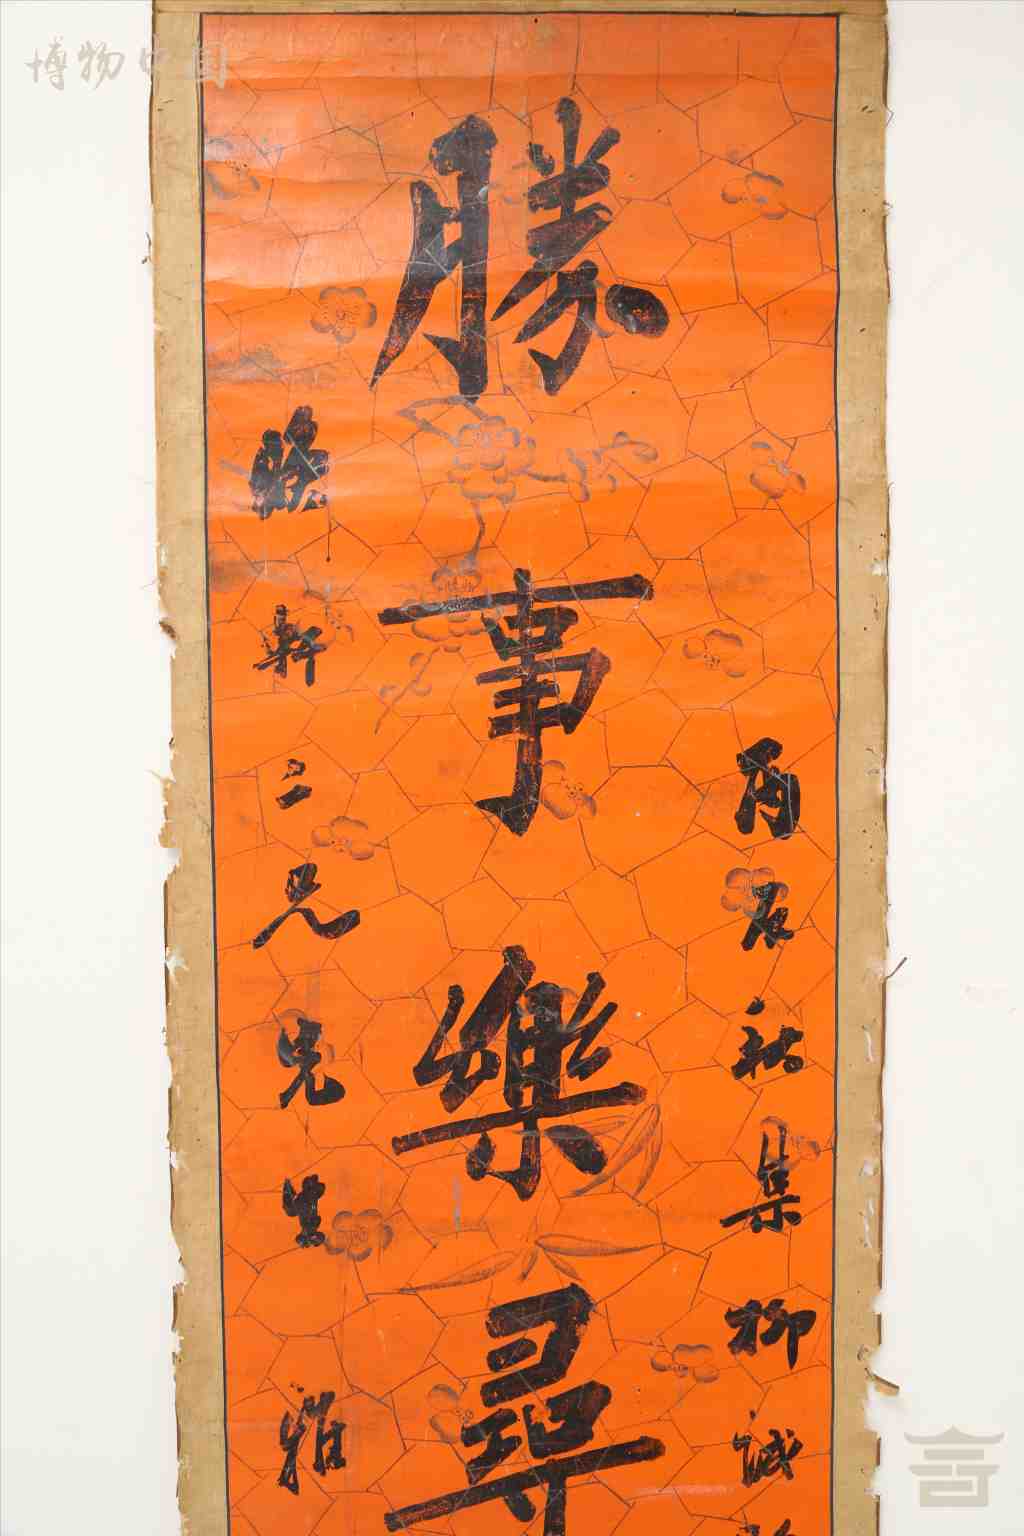 博物中国
丙辰秋集柳誠
勝事樂尋
晚軒二兄先生雅